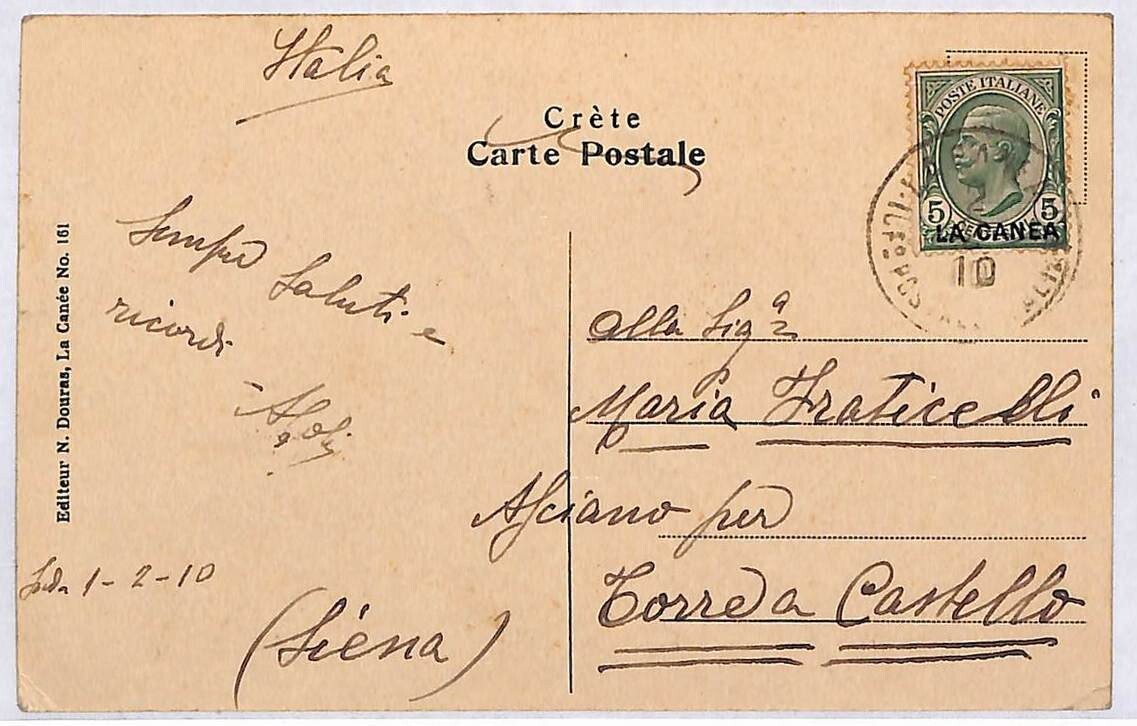 Italia
Crète
Carte Postale
POSTE ITALIANE
5 5
LA CANEA
10
Sempre saluti e
ricordi
Editeur N. Douras, La Canée No. 161
1-2-10
alla Sigª
Maria Fraticelli
Asciano per
Torre a Castello
(Siena)